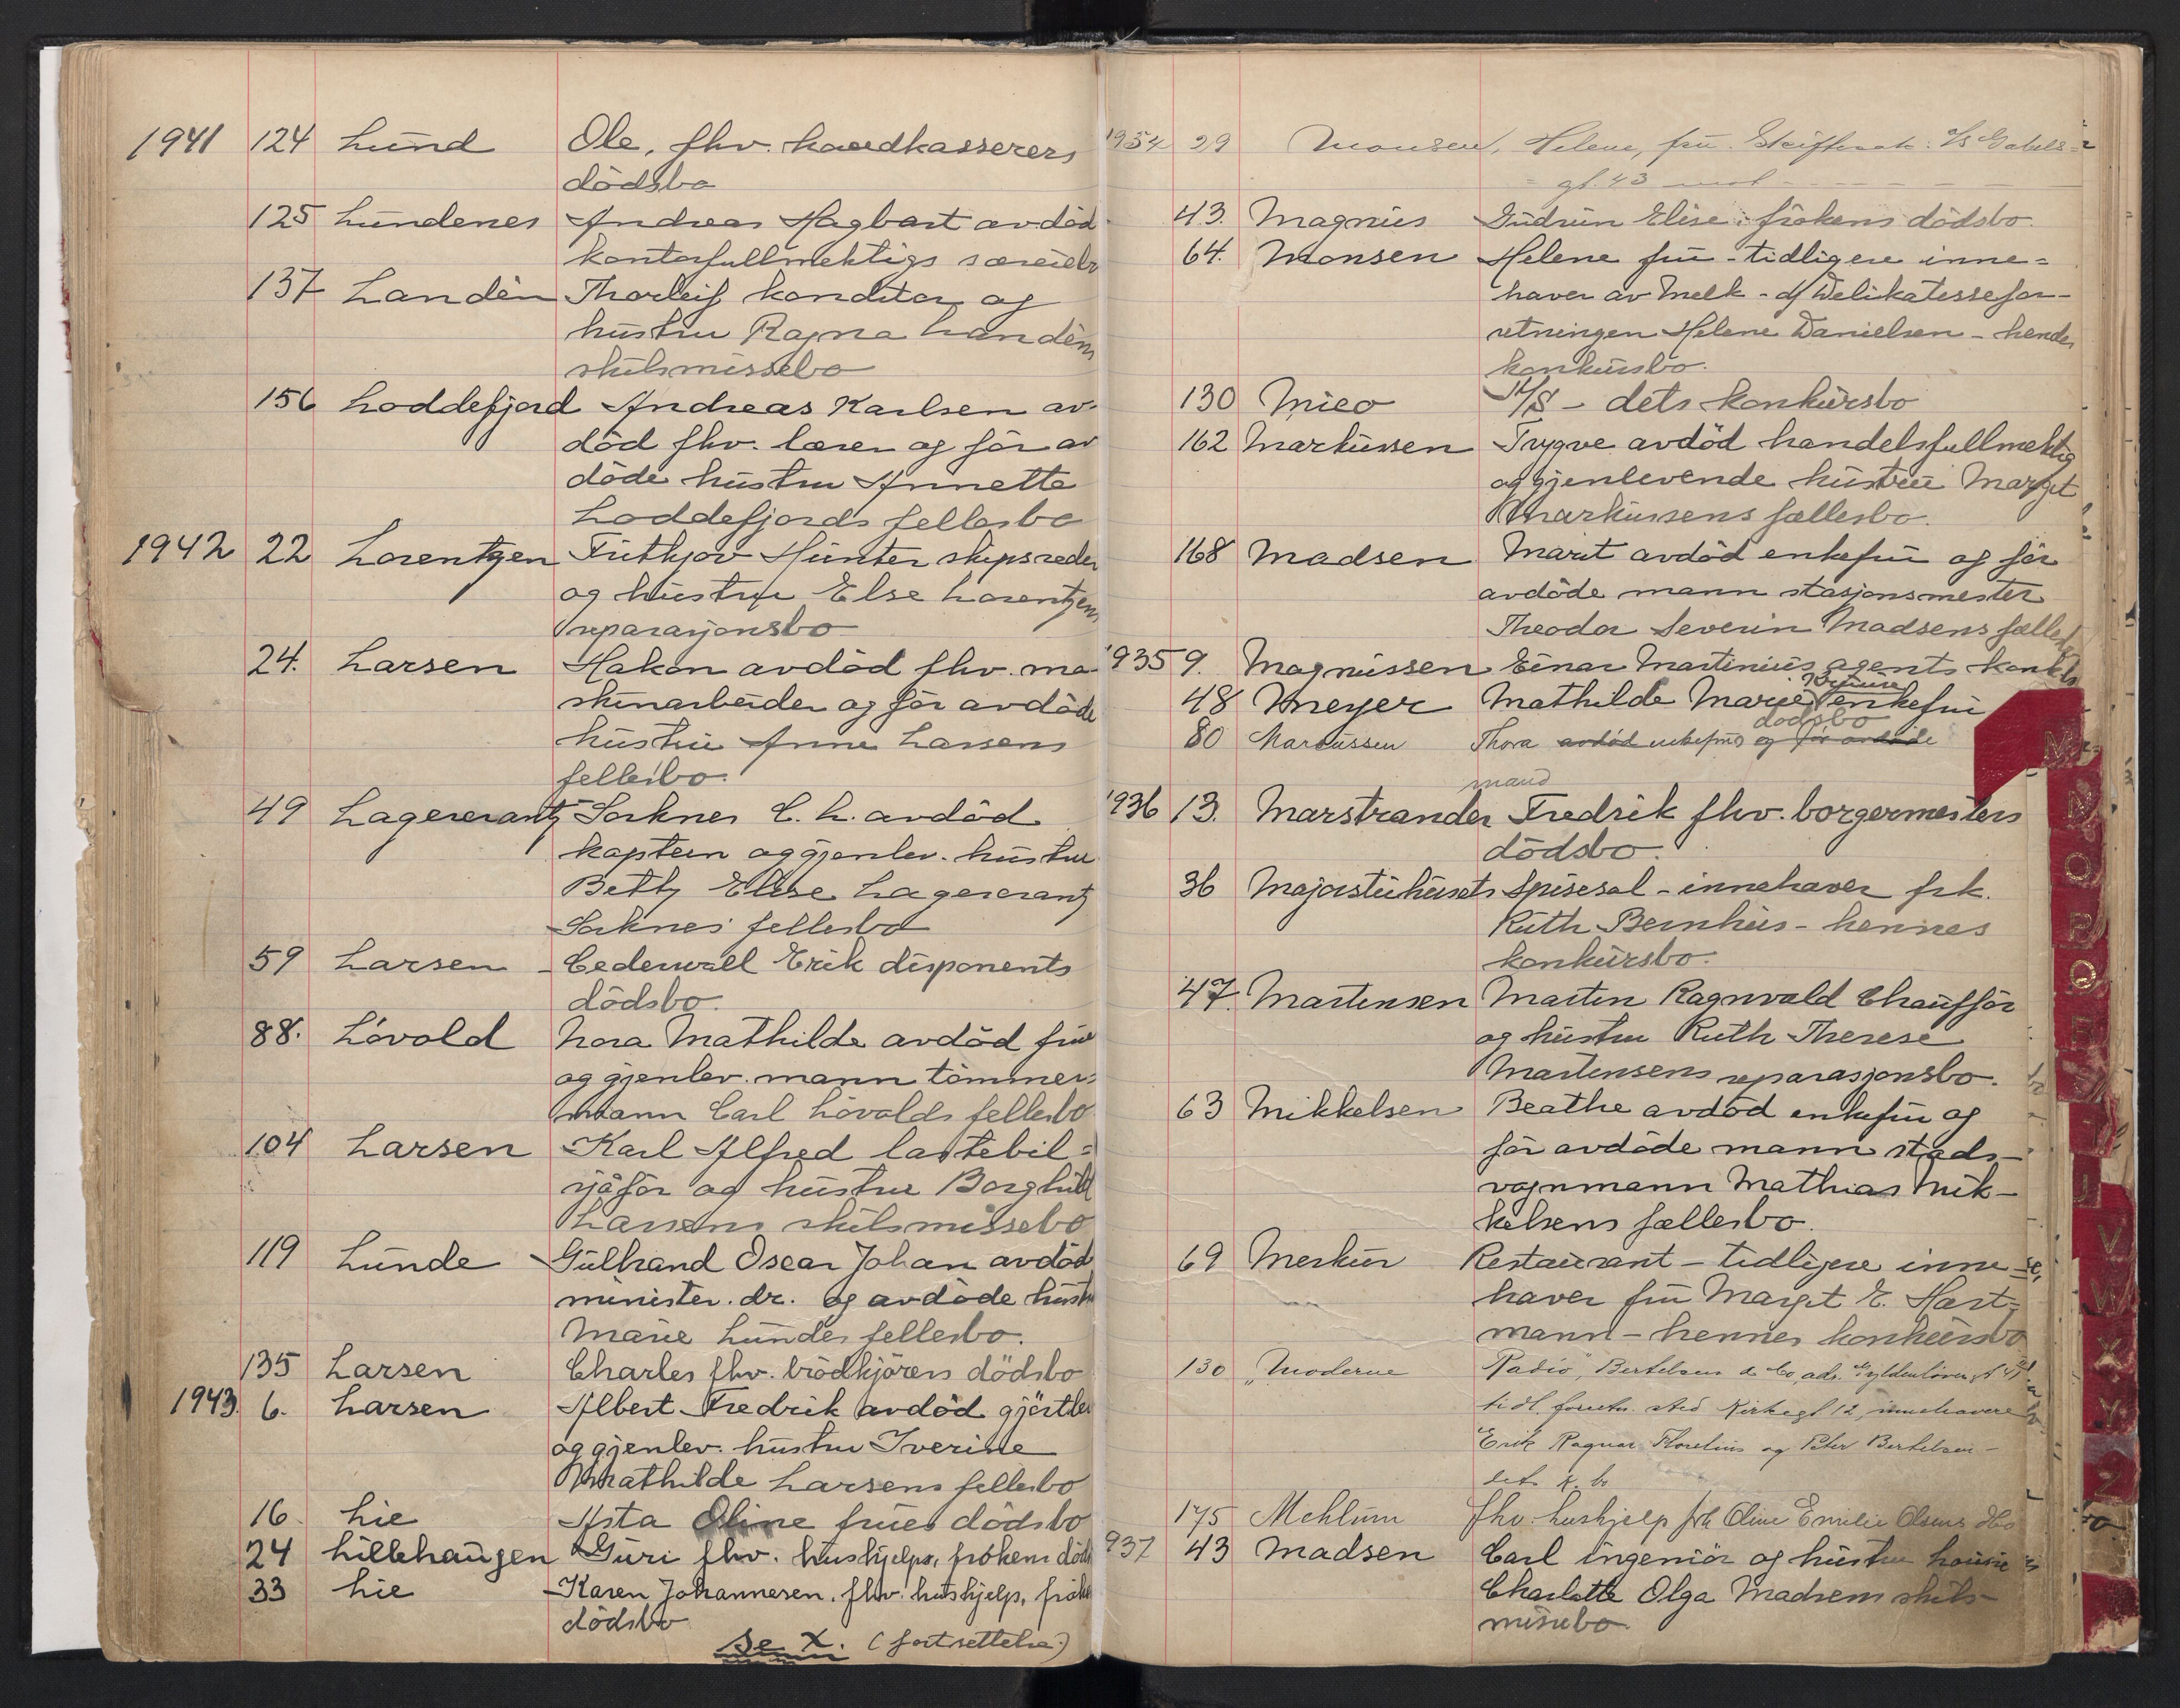 1941 124 Lund Ole, fhv. handkasserers
dödsbo
125 Lundenes Andreas Hagbart avdöd
kontorfullmektigs særeiebo
137 Landén Thorleif konditor og
hustru Ragna Landéns
skilsmissebo
156 Loddefjord Andreas Karlsen av-
död fhv. lærer og för av
döde hustru Annette
Loddefjords fellesbo
1942 22 Lorentzen Frithjov Hunter skipsreder
og hustru Else Lorentzens
separasjonsbo
24. Larsen Hakon avdöd fhv. ma-
skinarbeider og för avdöde
hustru Anne Larsens
fellesbo.
49 Lagercrantz Sarknes C. L. avdöd
kaptein og gjenlev. hustru
Betty Elise Lagercrantz
Sarknes fellesbo
59 Larsen - Cederwall Erik disponents
dödsbo.
88. Lövold Nora Mathilde avdöd frue
og gjenlev. mann tömmer-
mann Carl Lövolds fellesbo
104 Larsen Karl Alfred lastebil=
sjåför og hustru Borghild
Larsens skilsmissebo
119 Lunde Gulbrand Oscar Johan avdöd
minister. dr. og avdöde hustru
Marie Lundes fellesbo.
135 Larsen Charles fhv. brödkjörers dödsbo
1943. 6. Larsen Albert Fredrik avdöd gjörtler
og gjenlev. hustru Iverine
Mathilde Larsens fellesbo
16. Lie Asta Oline frues dödsbo
24 Lillehaugen Guri fhv. hushjelps, frökens döds
33 Lie Karen Johannesen. fhv. hushjelps, frök
dödsbo
Se X. (fortsettelse)
1934 29 Monsen, Helene, fru.
gt. 43
43. Magnus Gudrun Elise frökens dödsbo.
64. Monsen Helene fru - tidligere inne=
haver av Melk- og Delikatessefor-
retningen Helene Danielsen - hendes
konkursbo.
130 Mico A/S - dets konkursbo
162 Markussen Trygve avdöd handelsfullmektig
og gjenlevende hustru Margit
Markussens fællesbo.
168 Madsen Marit avdöd enkefru og för
avdöde mann stasjonsmester
Theodor Severin Madsens fælles
1935 9. Magnussen Einar Martinius agents konkbo
48 Meyer Mathilde Marie enkefru
dödsbo
80 Marcussen Thora avdöd enkefrus og för avdöde
mand
1936 13. Marstrander Fredrik fhv. borgermesters
dödsbo.
36 Majorstuhusets Spisesal - innehaver frk.
Ruth Bernhus - hennes
konkursbo.
47. Martinsen Martin Ragnvald Chaufför
og hustru Ruth Therese
Martinsens separasjonsbo.
63 Mikkelsen Beathe avdöd enkefru og
för avdöde mann stads-
vognmann Mathias Mik-
kelsens fællesbo.
69 Merkur Restaurant - tidligere inne-
haver fru Margit E. Hart=
mann - hennes konkursbo
130 "Moderne Radio", Bertelsen & Co, adr. Gyldenlöves gt 47
tidl. forretn. sted Kirkegt 12, innehavere
Erik Ragnar Thorelius og Peter Bertelsen -
det k. bo
175 Mehlum fhv. hushjelp frk Oline Emilie Olsens dbo
1937 43 Madsen Carl ingeniör og hustru Lovise
Charlotte Olga Madsens skils-
missebo
M
N
O
P
Q
R
S
T
U
V
W
X
Y
Z